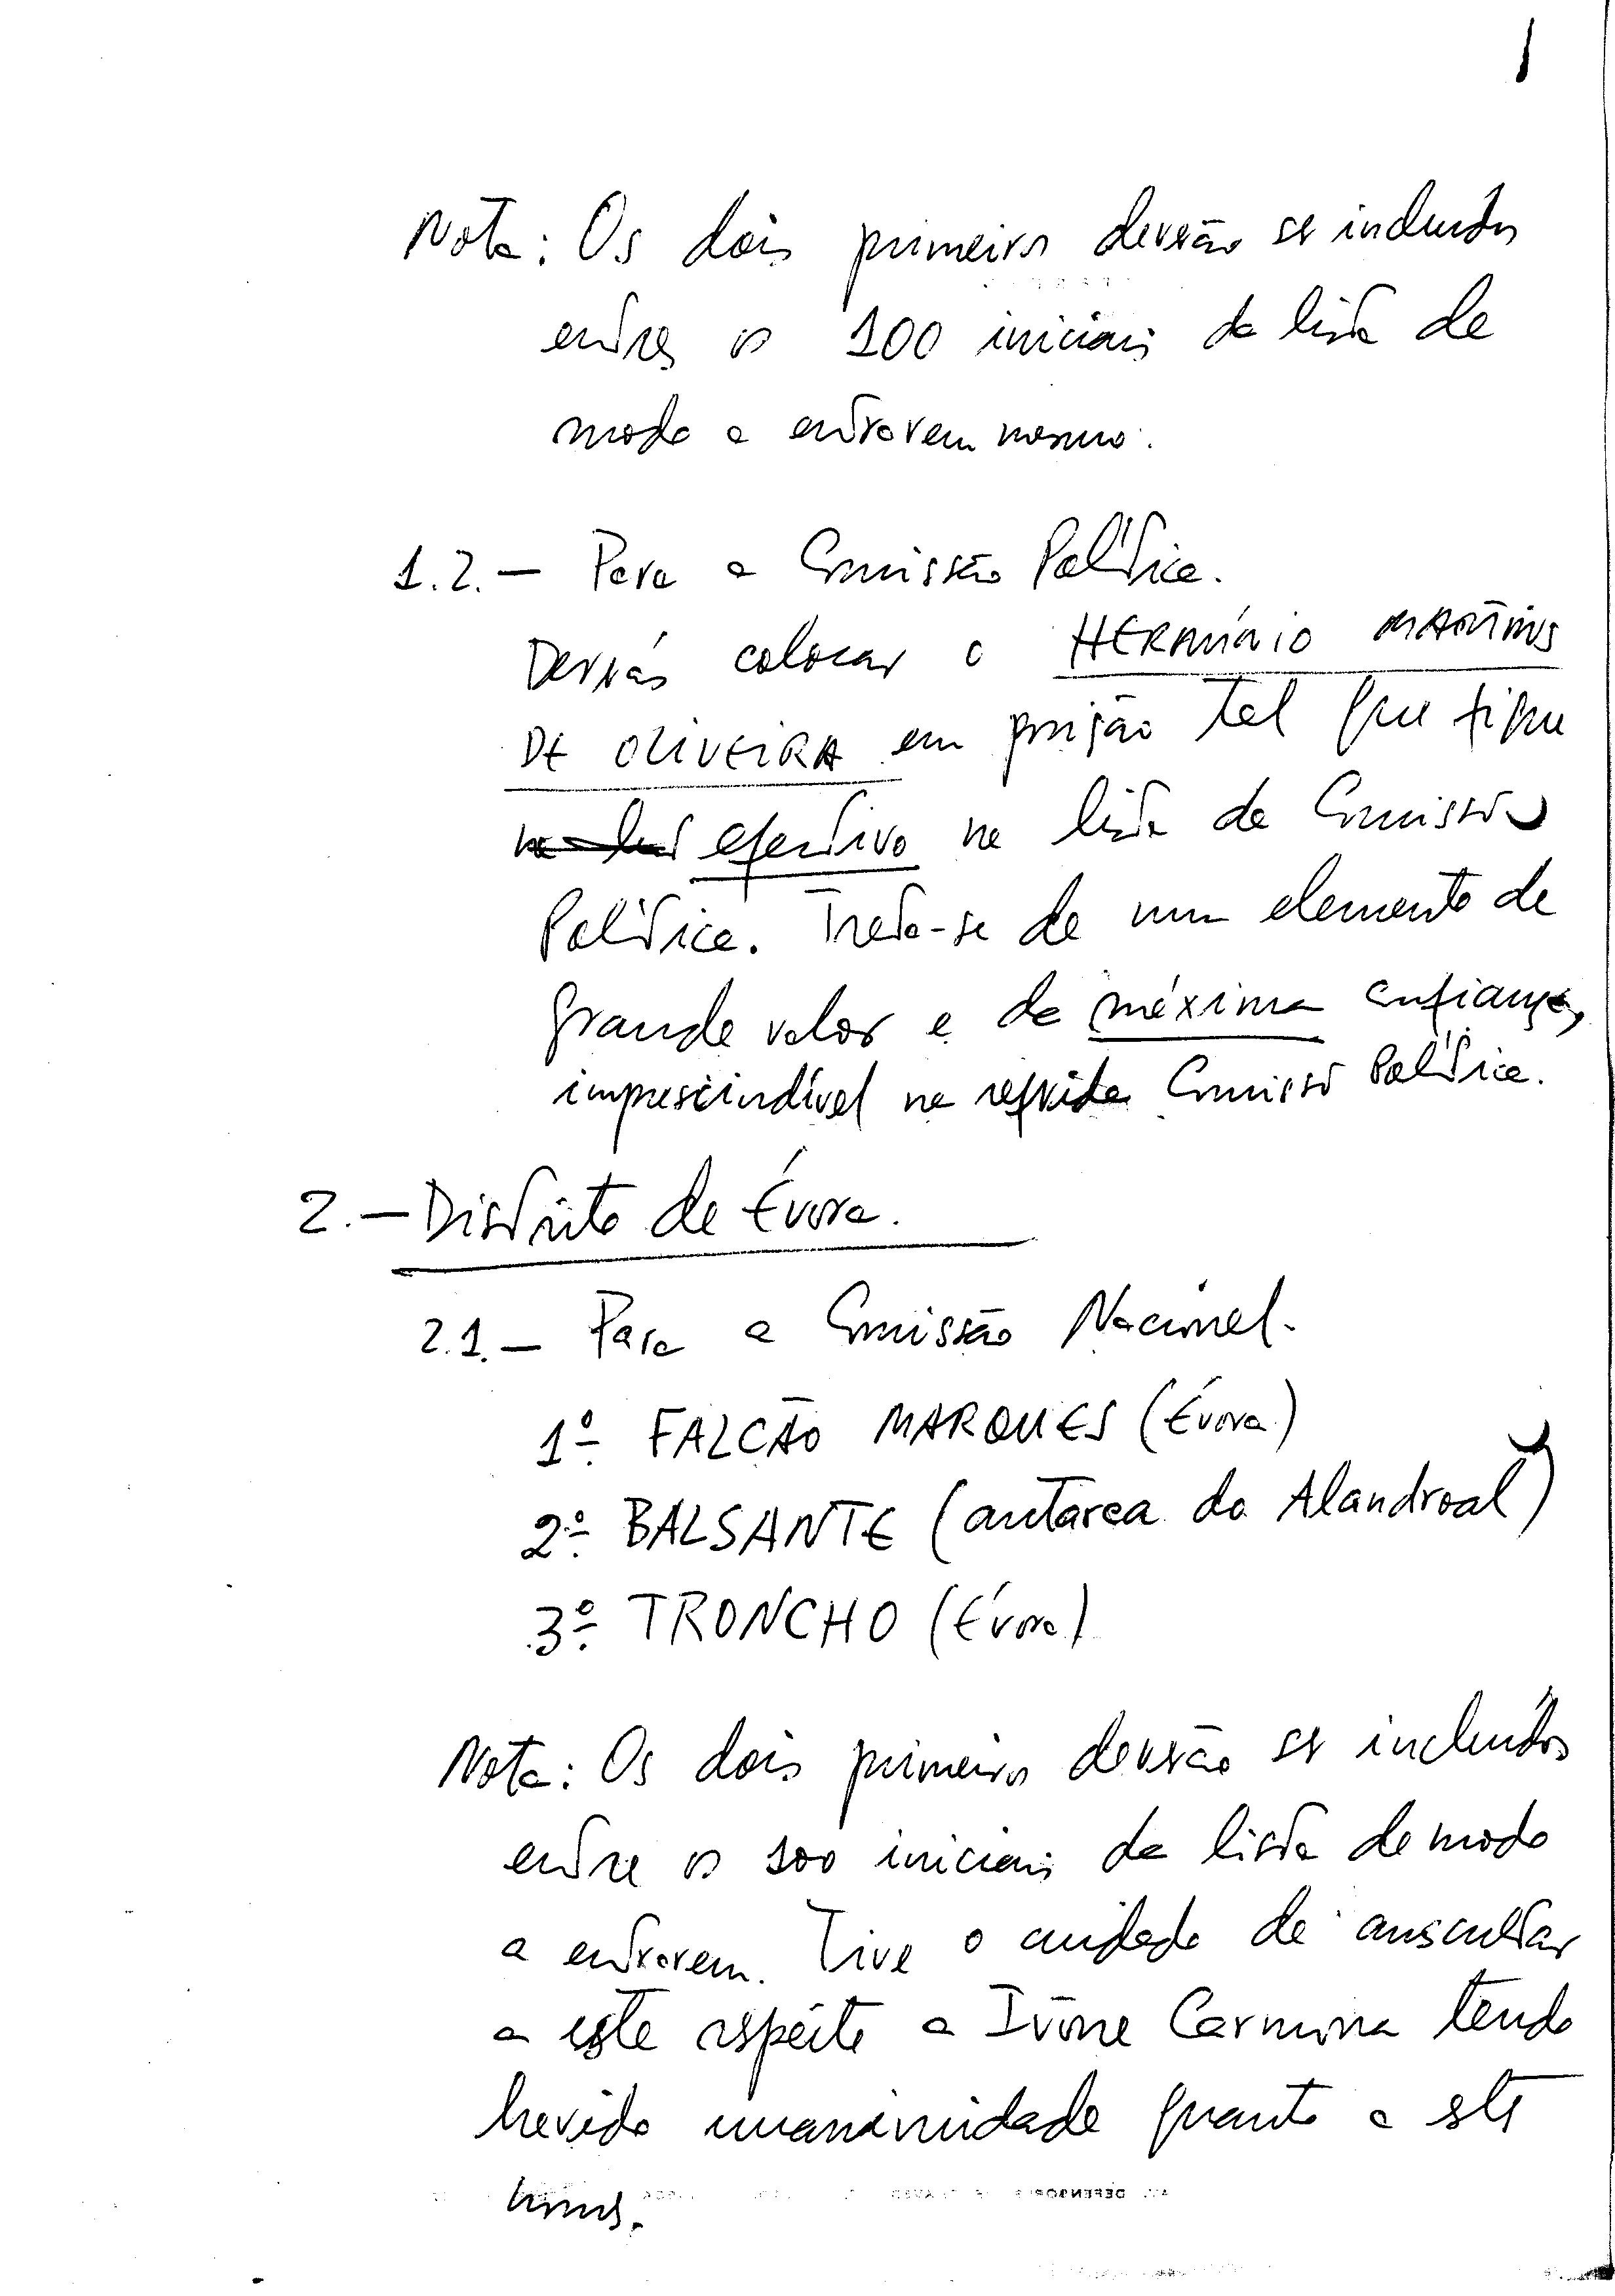 Nota: Os dois primeiros deverão ser incluídos
entre os 100 iniciais da lista de
modo a entrarem mesmo.
1.2. — Para a Comissão Política.
Deverás colocar o HERMÍNIO MARTINS
DE OLIVEIRA em posição tal que fique
efectivo na lista da Comissão
Política. Trata-se de um elemento de
grande valor e de máxima confiança,
imprescindível na referida Comissão Política.
2. — Distrito de Évora.
2.1. — Para a Comissão Nacional.
1º FALCÃO MARQUES (Évora)
2º BALSANTE (autarca do Alandroal)
3º TRONCHO (Évora)
Nota: Os dois primeiros deverão ser incluídos
entre os 100 iniciais da lista de modo
a entrarem. Tive o cuidado de auscultar
a este respeito a Ivone Carmona tendo
havido unanimidade quanto a estes
nomes.
DEFENSORES